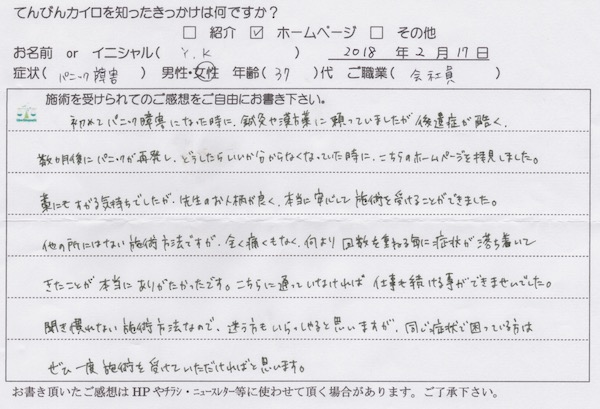 てんびんカイロを知ったきっかけは何ですか?
□ 紹介 ☑ ホームページ □ その他
お名前 or イニシャル( Y.K ) 2018 年 2 月 17 日
症状( パニック障害 ) 男性・女性 年齢( 37 )代 ご職業( 会社員 )
施術を受けられてのご感想をご自由にお書き下さい。
初めてパニック障害になった時に、鍼灸や漢方薬に頼っていましたが後遺症が酷く、
数ヶ月後にパニックが再発し、どうしたらいいか分からなくなっていた時に、こちらのホームページを拝見しました。
藁にもすがる気持ちでしたが、先生のお人柄が良く、本当に安心して施術を受けることができました。
他の所にはない施術方法ですが、全く痛くもなく、何より回数を重ねる毎に症状が落ち着いて
きたことが本当にありがたかったです。こちらに通っていなければ仕事も続ける事ができませんでした。
聞き慣れない施術方法なので、迷う方もいらっしゃると思いますが、同じ症状で困っている方は
ぜひ一度施術を受けていただければと思います。
お書き頂いたご感想はHPやチラシ・ニュースレター等に使わせて頂く場合があります。ご了承下さい。